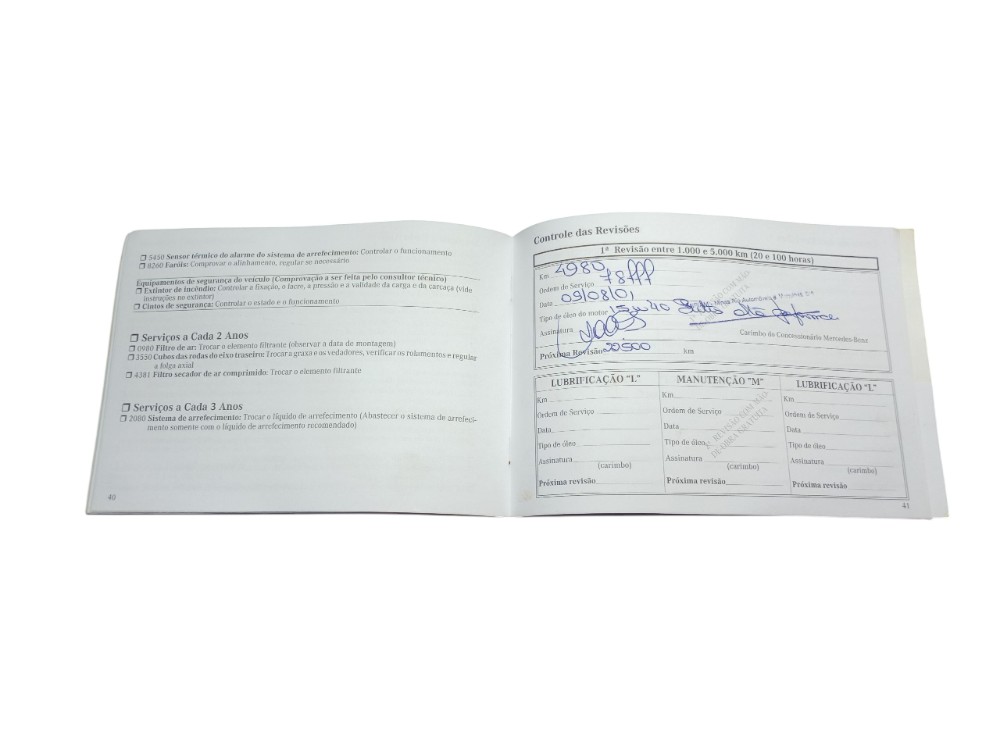 ❒ 5450 Sensor térmico do alarme do sistema de arrefecimento: Controlar o funcionamento
❒ 8260 Faróis: Comprovar o alinhamento, regular se necessário
Equipamentos de segurança do veículo (Comprovação a ser feita pelo consultor técnico)
❒ Extintor de incêndio: Controlar a fixação, o lacre, a pressão e a validade da carga e da carcaça (vide
instruções no extintor)
❒ Cintos de segurança: Controlar o estado e o funcionamento
❒ Serviços a Cada 2 Anos
❒ 0980 Filtro de ar: Trocar o elemento filtrante (observar a data de montagem)
❒ 3550 Cubos das rodas do eixo traseiro: Trocar a graxa e os vedadores, verificar os rolamentos e regular
a folga axial
❒ 4281 Filtro secador de ar comprimido: Trocar o elemento filtrante
❒ Serviços a Cada 3 Anos
❒ 2080 Sistema de arrefecimento: Trocar o líquido de arrefecimento (Abastecer o sistema de arrefeci-
mento somente com o líquido de arrefecimento recomendado)
40
Controle das Revisões
1ª Revisão entre 1.000 e 5.000 km (20 e 100 horas)
Km 4980
Ordem de Serviço
Data 09/08/01
Tipo do óleo do motor 15w40
Assinatura
Carimbo da Concessionária Mercedes-Benz
Próxima Revisão 20500 km
LUBRIFICAÇÃO "L" MANUTENÇÃO "M" LUBRIFICAÇÃO "L"
Km Km Km
Ordem de Serviço Ordem de Serviço Ordem de Serviço
Data Data Data
Tipo de óleo Tipo de óleo Tipo de óleo
Assinatura Assinatura Assinatura
(carimbo) (carimbo) (carimbo)
Próxima revisão Próxima revisão Próxima revisão
REVISÃO COM MÃO
DE OBRA GRATUITA
41